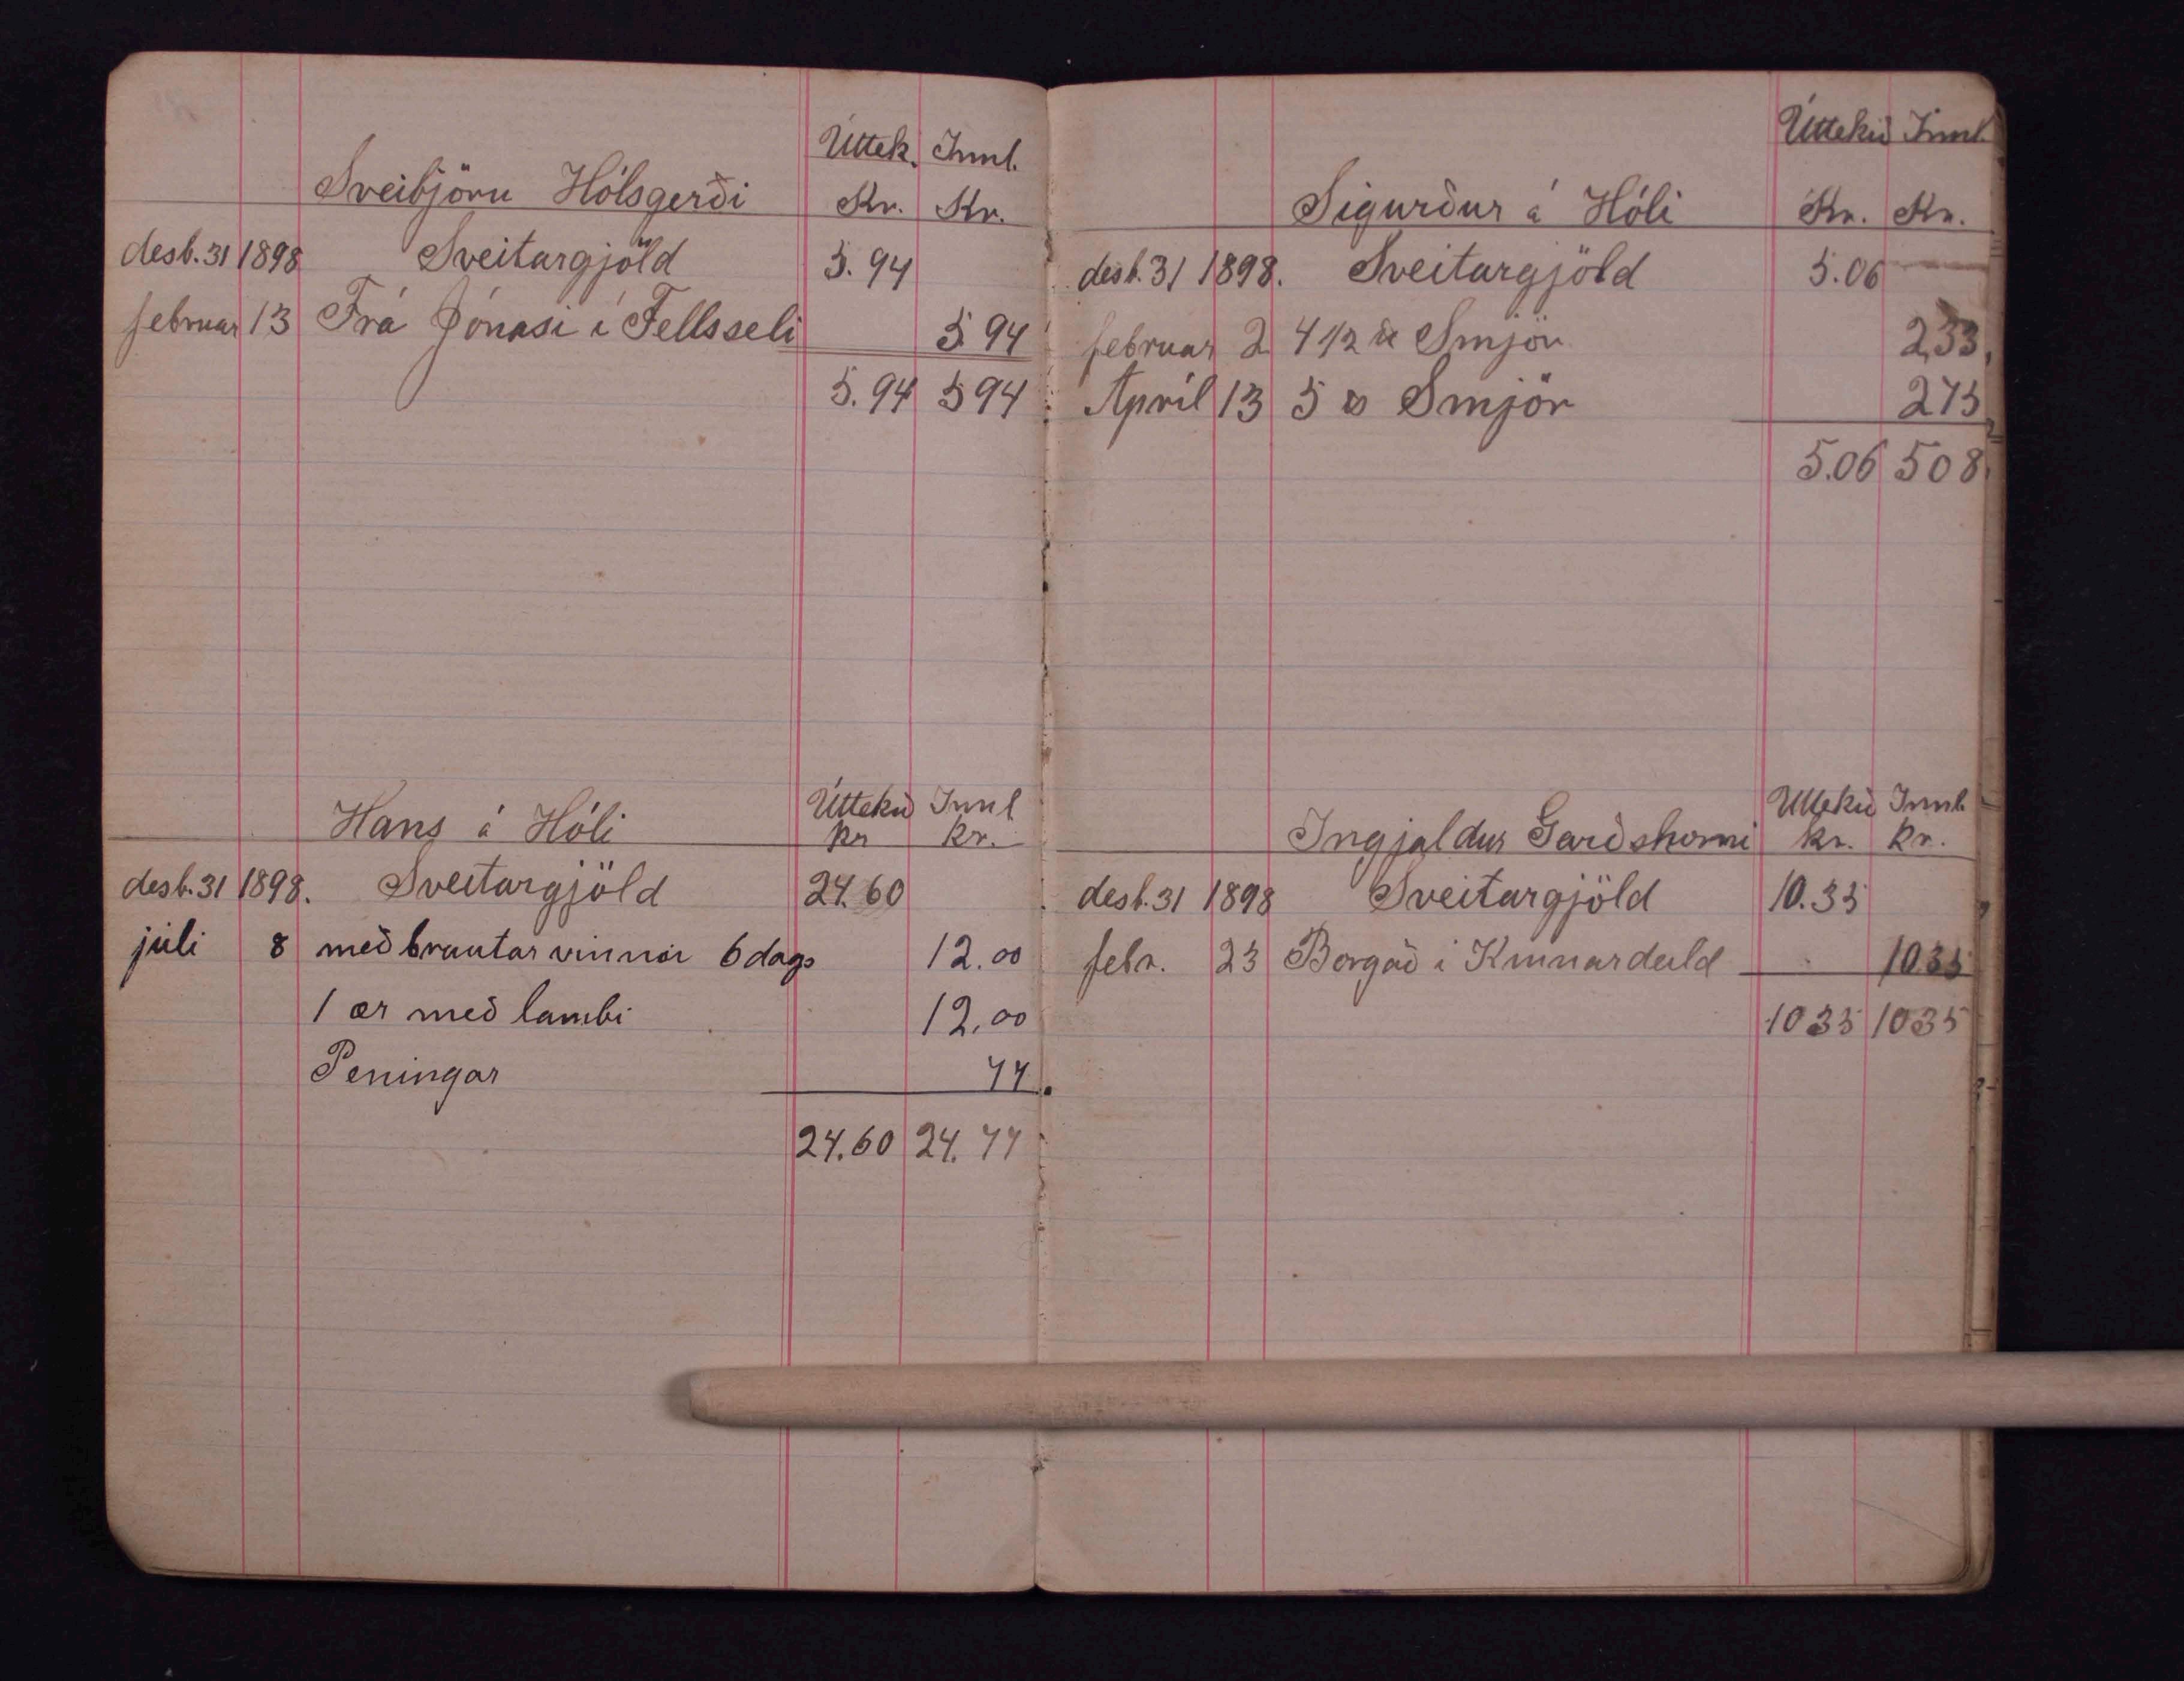 Úttek. Innl.
Sveibjörn Hólsgerði Kr. Kr.
desb. 31 1898 Sveitargjöld 5.94
februar 13 Frá Jónasi í Fellsseli 5 94
5.94 5 94
Hans á Hóli Úttekið Innl
kr kr.
desb. 31 1898. Sveitargjöld 24.60
júli 8 með brautar vinnu 6 dags 12.00
1 ær með lambi 12.00
Peningar 44
24.60 24.44
Úttekið Innl.
Sigurður á Hóli Kr. Kr.
desb. 31 1898. Sveitargjöld 5.06
februar 2 4 1/2 Smjör 2,33
Apríl 13 5 Smjör 275
5.06 508
Úttekið Innl.
Ingjaldur Garðshorni kr. kr.
desb. 31 1898 Sveitargjöld 10.35
febr. 23 Borgað í Kinnardeild 1035
1035 1035